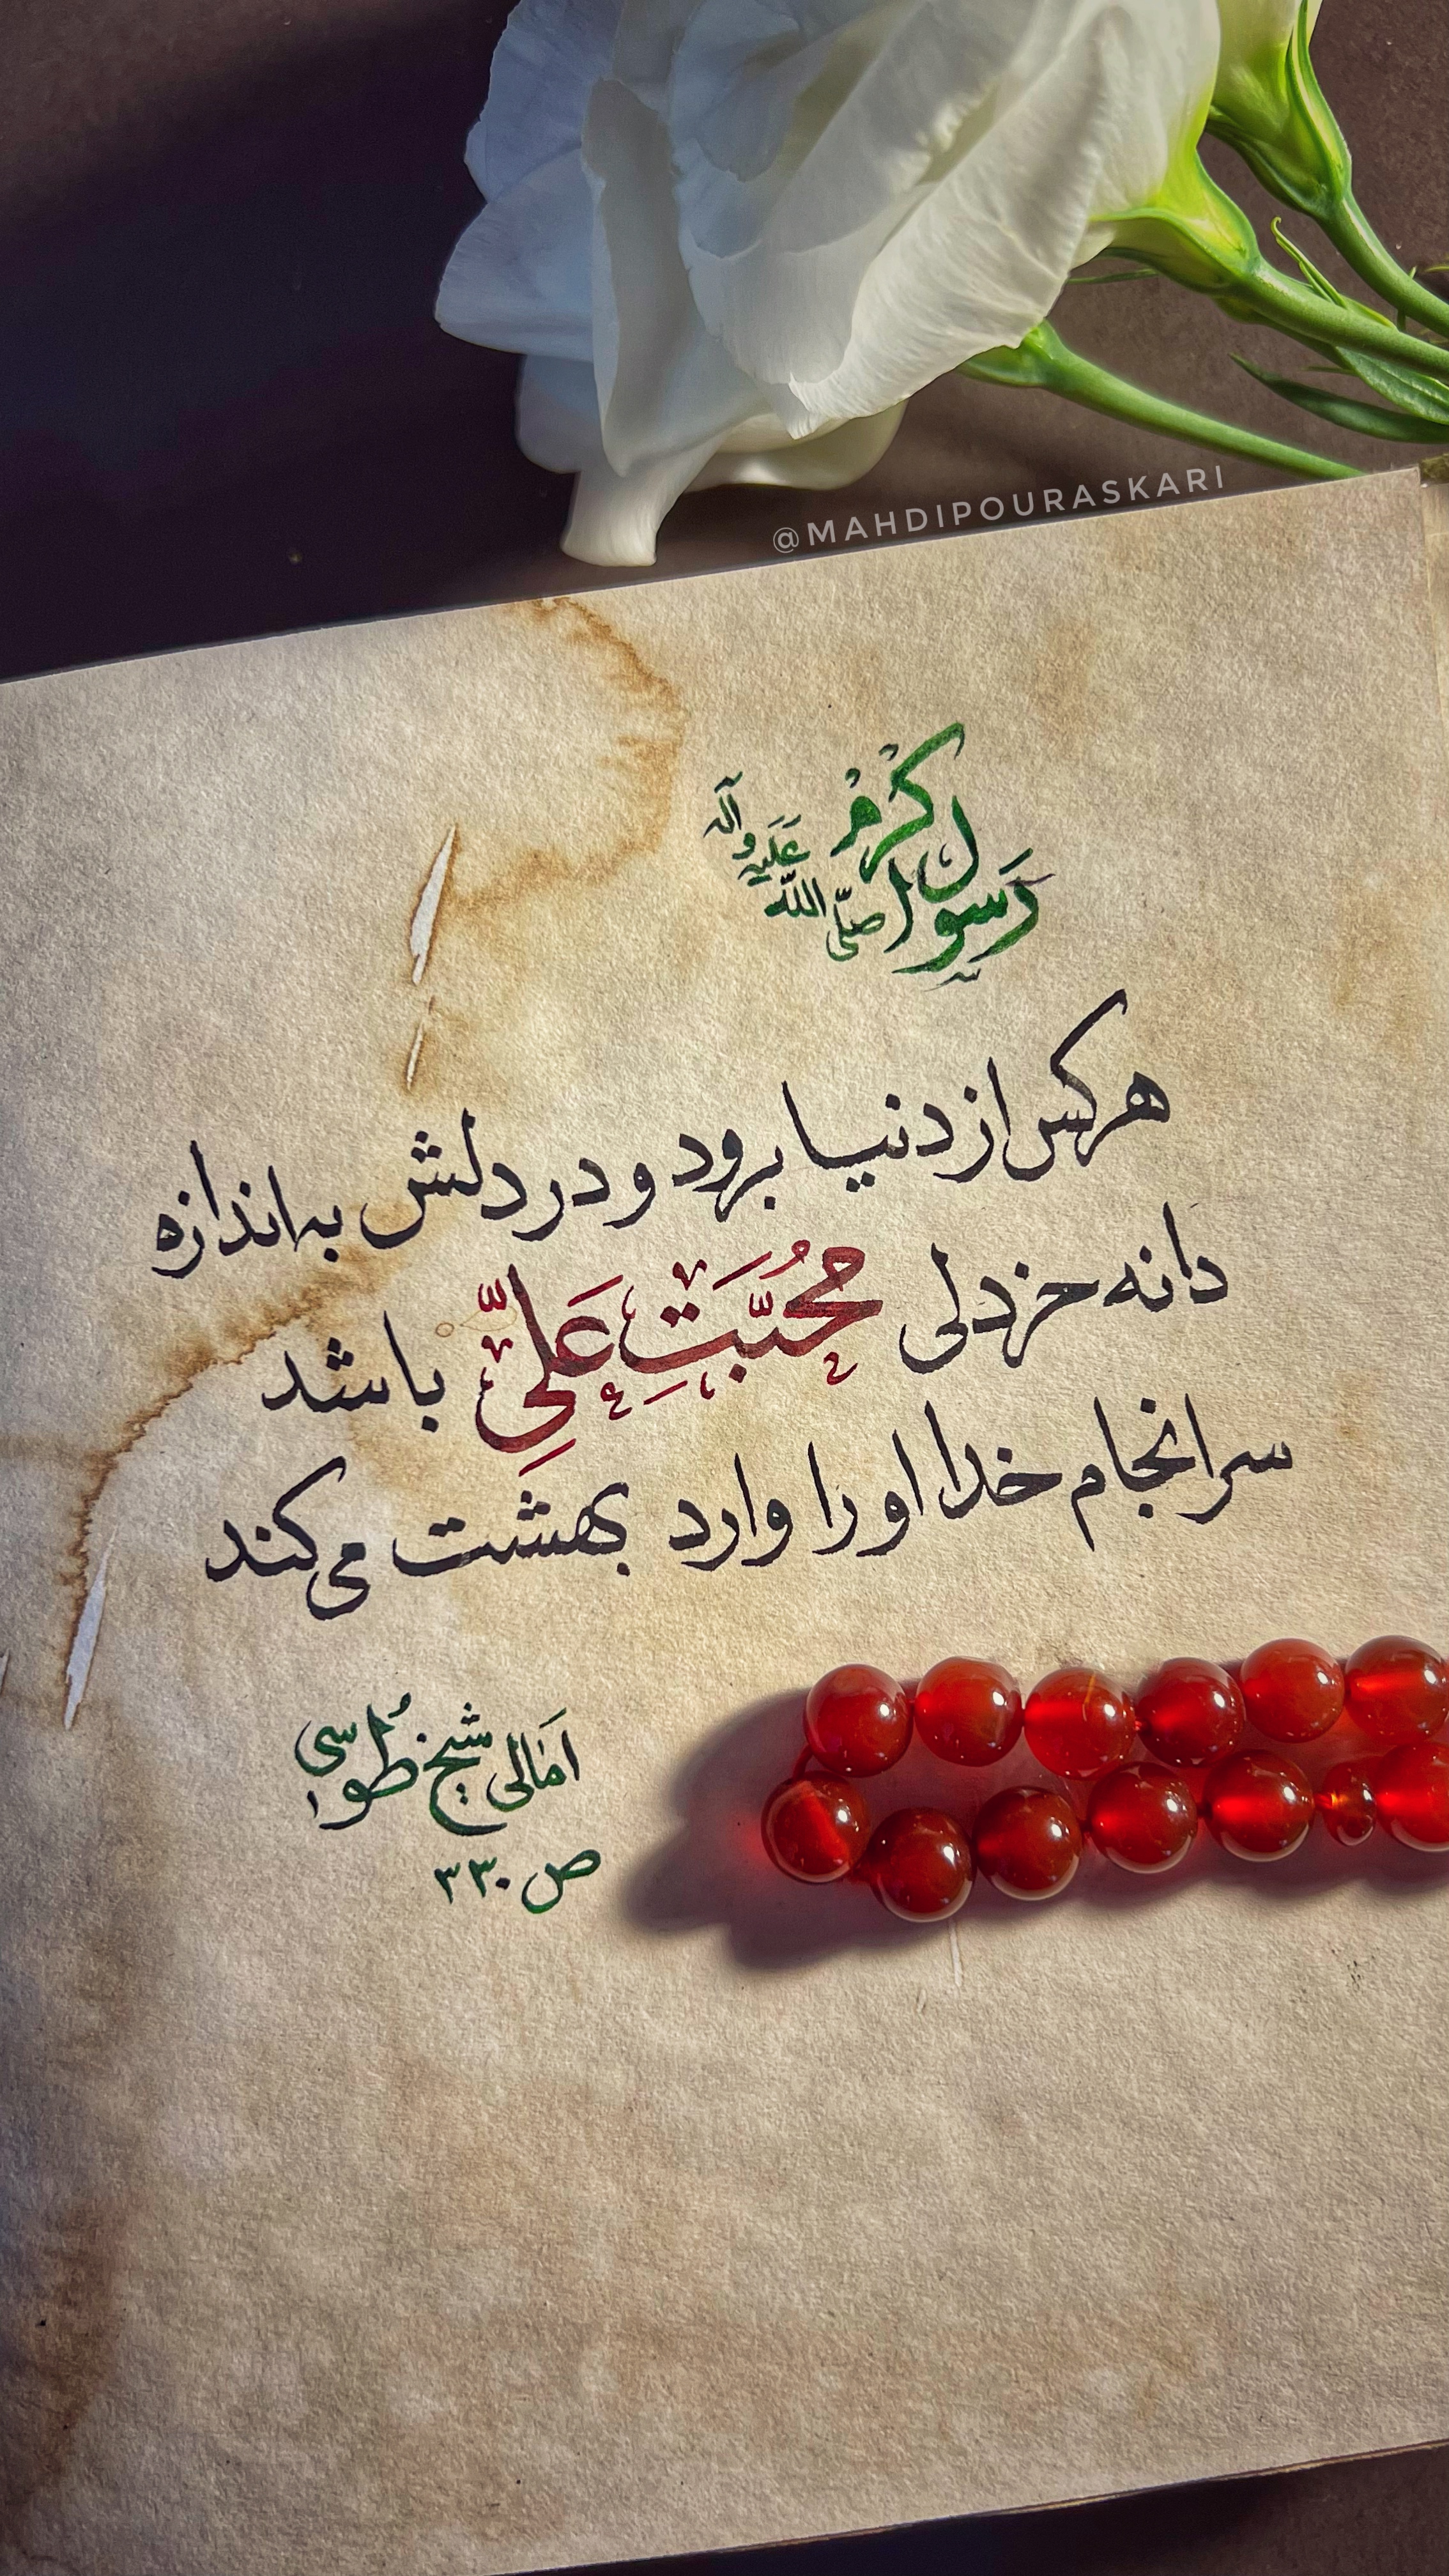 @MAHDIPOURASKARI
رَسول اکرم صلّی الله عَلَیه وَآله
هرکس از دنیا برود و در دلش به اندازه
دانه خردلی مُحبَّتِ عَلیِّ باشد
سرانجام خدا او را وارد بهشت می‌کند
اَمالی شیخ طُوسی
ص ۳۳۰